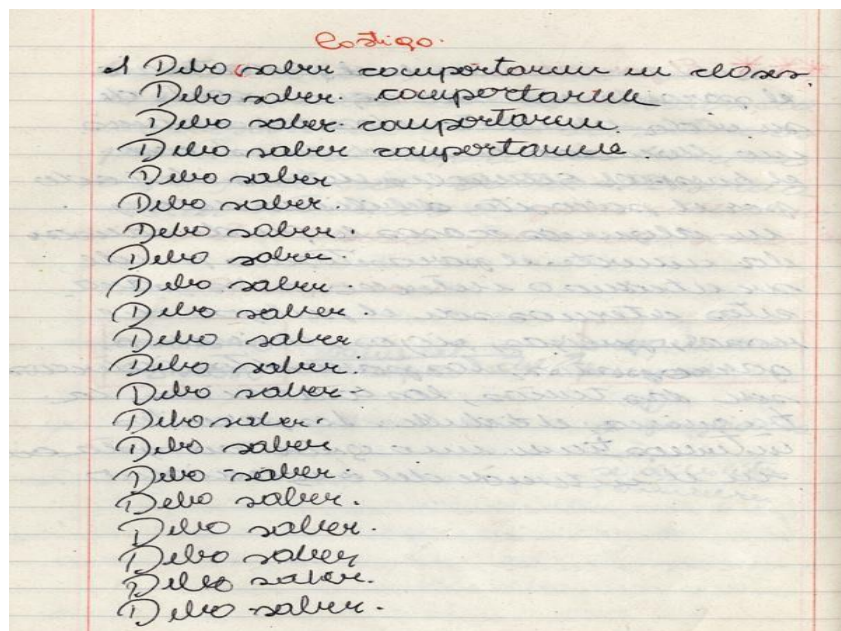 Castigo.
1 Debo saber comportarme en clases.
Debo saber. comportarme
Debo saber. comportarme.
Debo saber comportarme.
Debo saber
Debo saber.
Debo saber.
Debo saber.
Debo saber.
Debo saber.
Debo saber
Debo saber.
Debo saber-
Debo saber.
Debo saber
Debo saber.
Debo saber.
Debo saber.
Debo saber
Debo saber.
Debo saber.